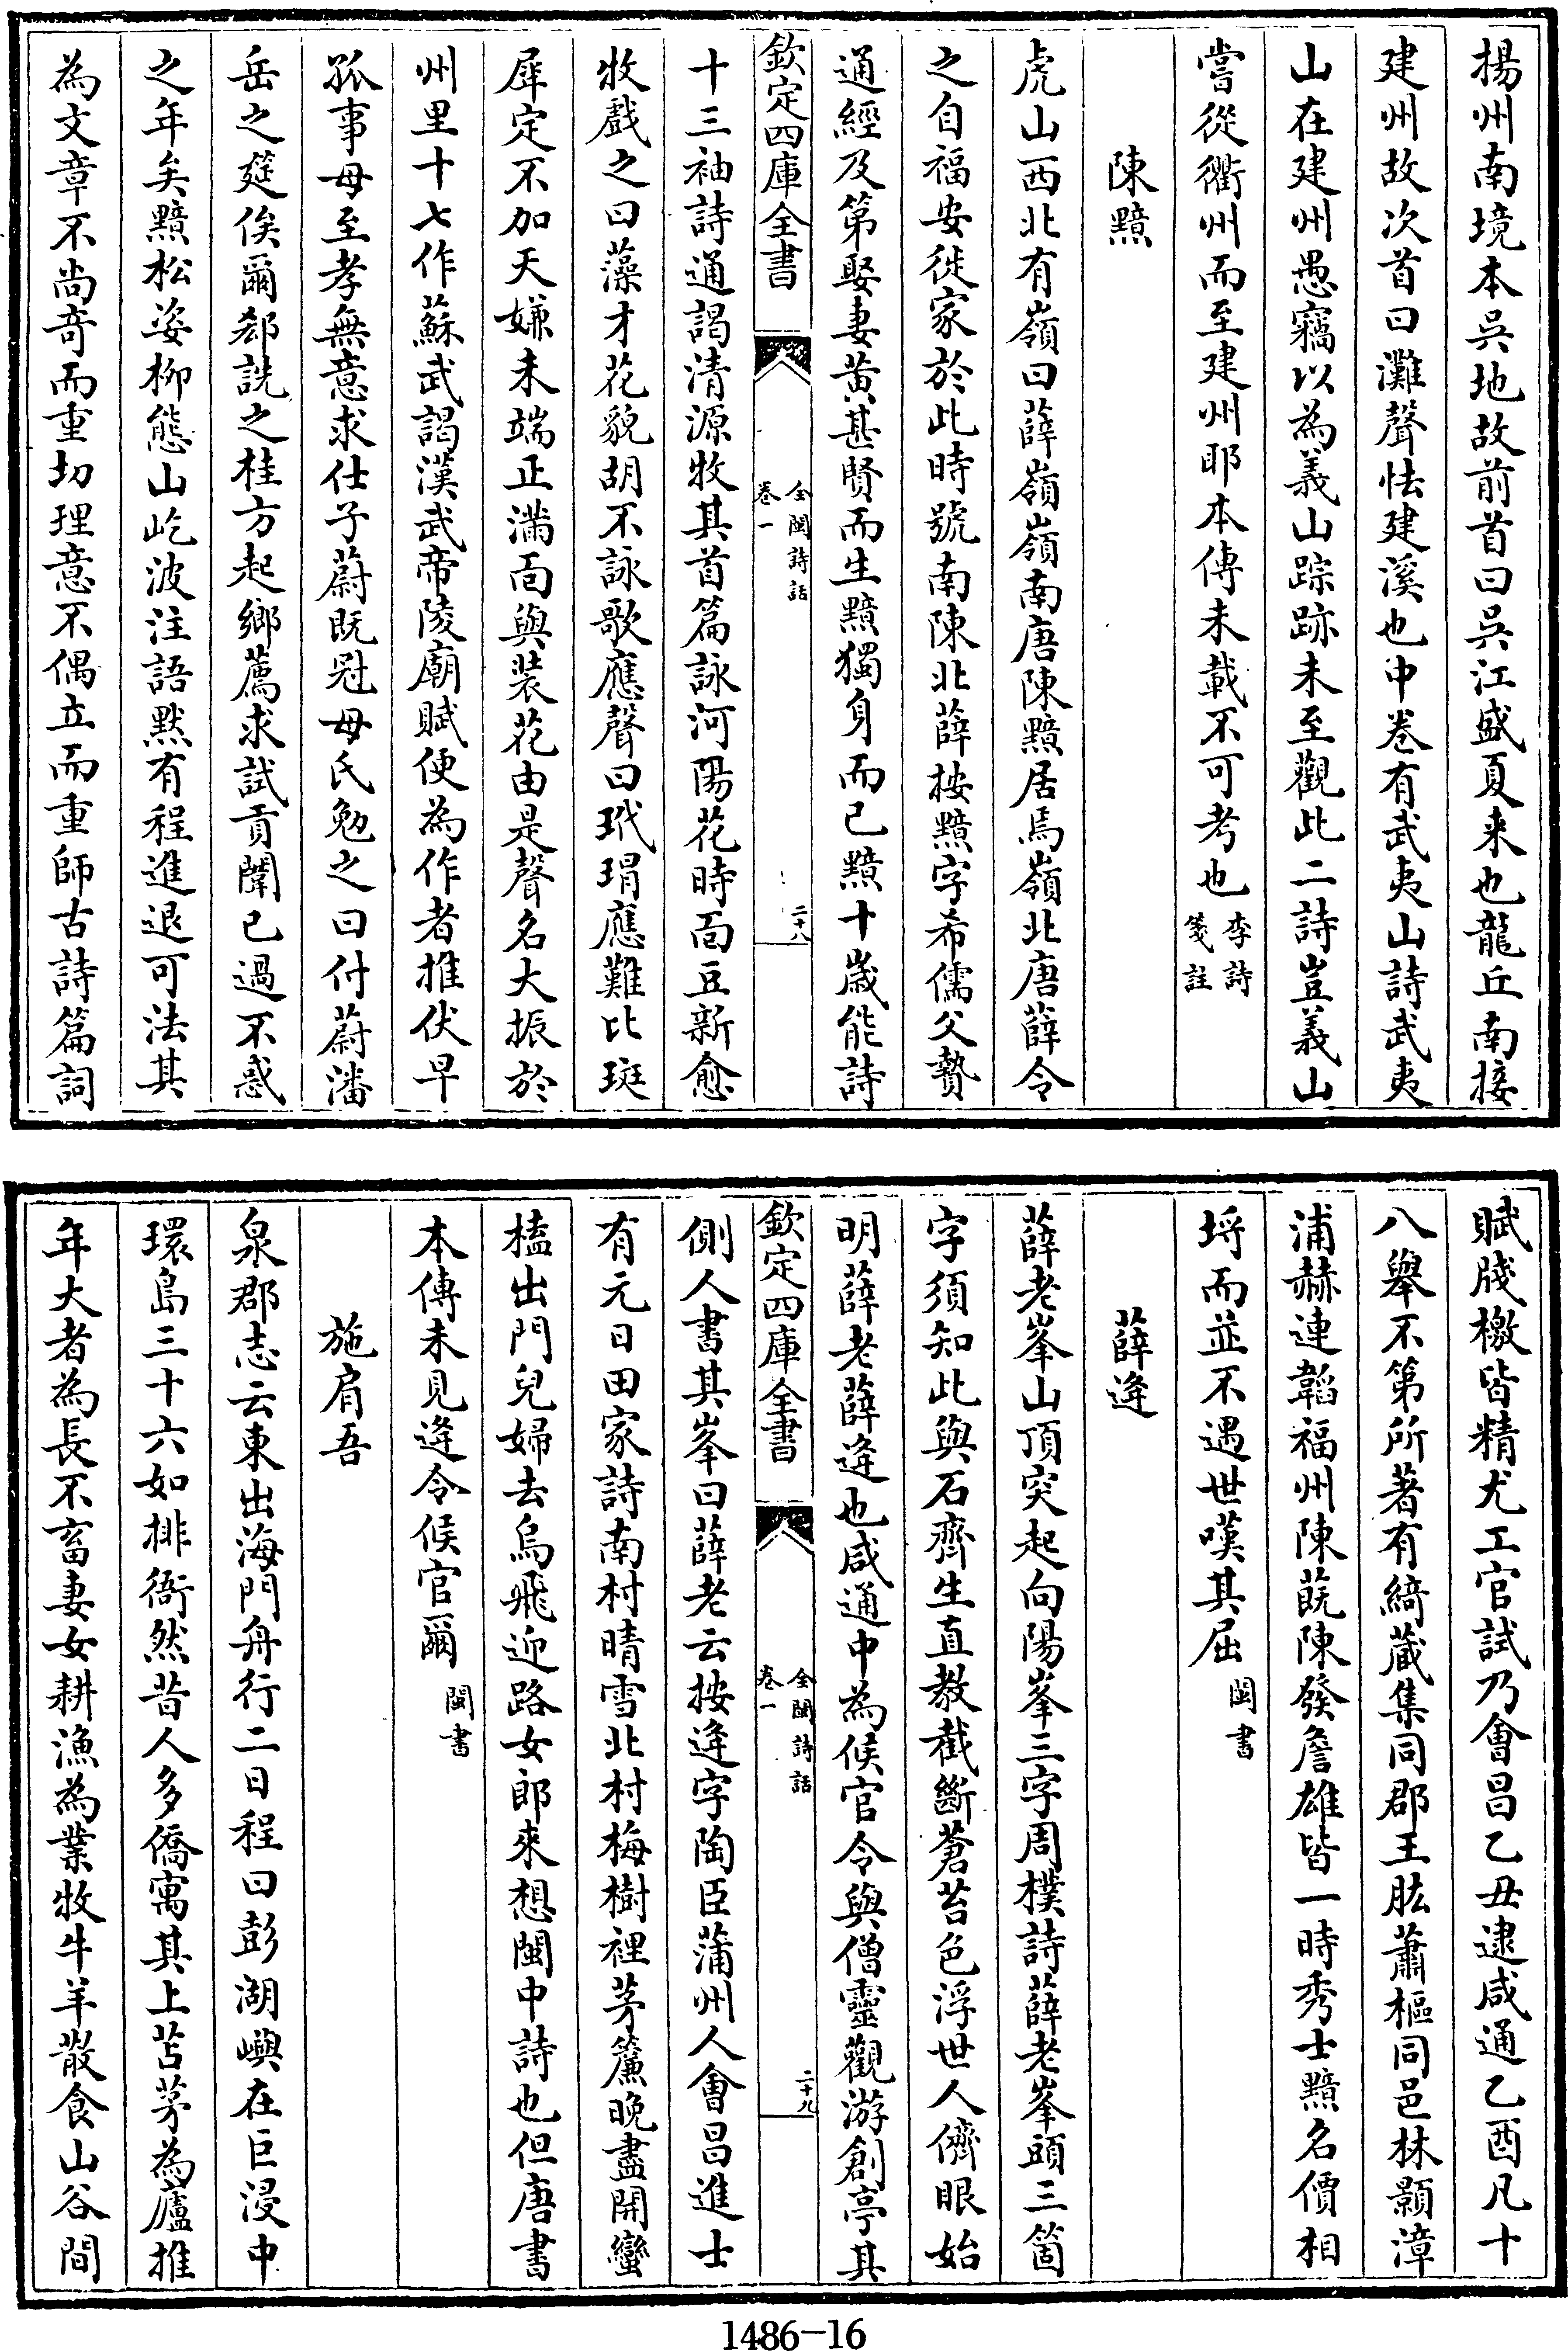 揚州南境本吳地故前首曰吳江盛夏来也龍丘南接
建州故次首曰灘聲怯建溪也中卷有武夷山詩武夷
山在建州愚竊以為義山踪跡未至觀此二詩豈義山
嘗從衢州而至建州耶本傳未載不可考也李詩箋註
陳黯
虎山西北有嶺曰薛嶺嶺南唐陳黯居焉嶺北唐薛令
之自福安徙家於此時號南陳北薛按黯字希儒父贄
通經及第娶妻黄甚賢而生黯獨身而已黯十歲能詩
欽定四庫全書
全閩詩話
卷一
二十八
十三袖詩通謁清源牧其首篇詠河陽花時面豆新愈
牧戲之曰藻才花貌胡不詠歌應聲曰玳瑁應難比斑
犀定不加天嫌未端正滿面與裝花由是聲名大振於
州里十七作蘇武謁漢武帝陵廟賦便為作者推伏早
孤事母至孝無意求仕子蔚既冠母氏勉之曰付蔚潘
岳之筵俟爾郄詵之桂方起鄉薦求試貢闈已過不惑
之年矣黯松姿柳態山屹波注語默有程進退可法其
為文章不尚竒而重切理意不偶立而重師古詩篇詞
賦牋檄皆精尤工官試乃會昌乙丑逮咸通乙酉凡十
八舉不第所著有綺藏集同郡王肱蕭樞同邑林顥漳
浦赫連韜福州陳蔇陳發詹雄皆一時秀士黯名價相
埒而並不遇世嘆其屈閩書
薛逄
薛老峯山頂突起向陽峯三字周樸詩薛老峯頭三箇
字須知此與石齊生直教截斷蒼苔色浮世人儕眼始
明薛老薛逄也咸通中為候官令與僧靈觀游創亭其
欽定四庫全書
全閩詩話
卷一
二十九
側人書其峯曰薛老云按逄字陶臣蒲州人會昌進士
有元日田家詩南村晴雪北村梅樹裡茅簷晚盡開蠻
榼出門兒婦去烏飛迎路女郎來想閩中詩也但唐書
本傳未見逄令候官爾閩書
施肩吾
泉郡志云東出海門舟行二日程曰彭湖嶼在巨浸中
環島三十六如排衙然昔人多僑寓其上苫茅為廬推
年大者為長不畜妻女耕漁為業牧牛羊散食山谷間
1486-16